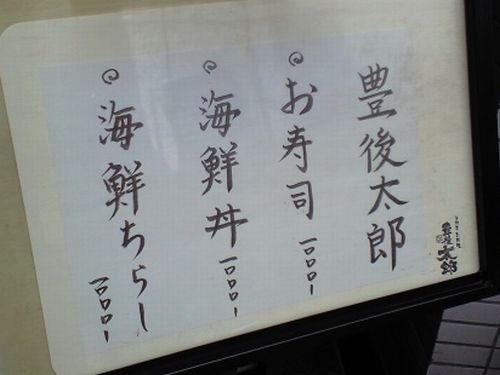 豊後太郎
お寿司 一〇〇〇ー
海鮮丼 一〇〇〇ー
海鮮ちらし 一〇〇〇ー
太郎